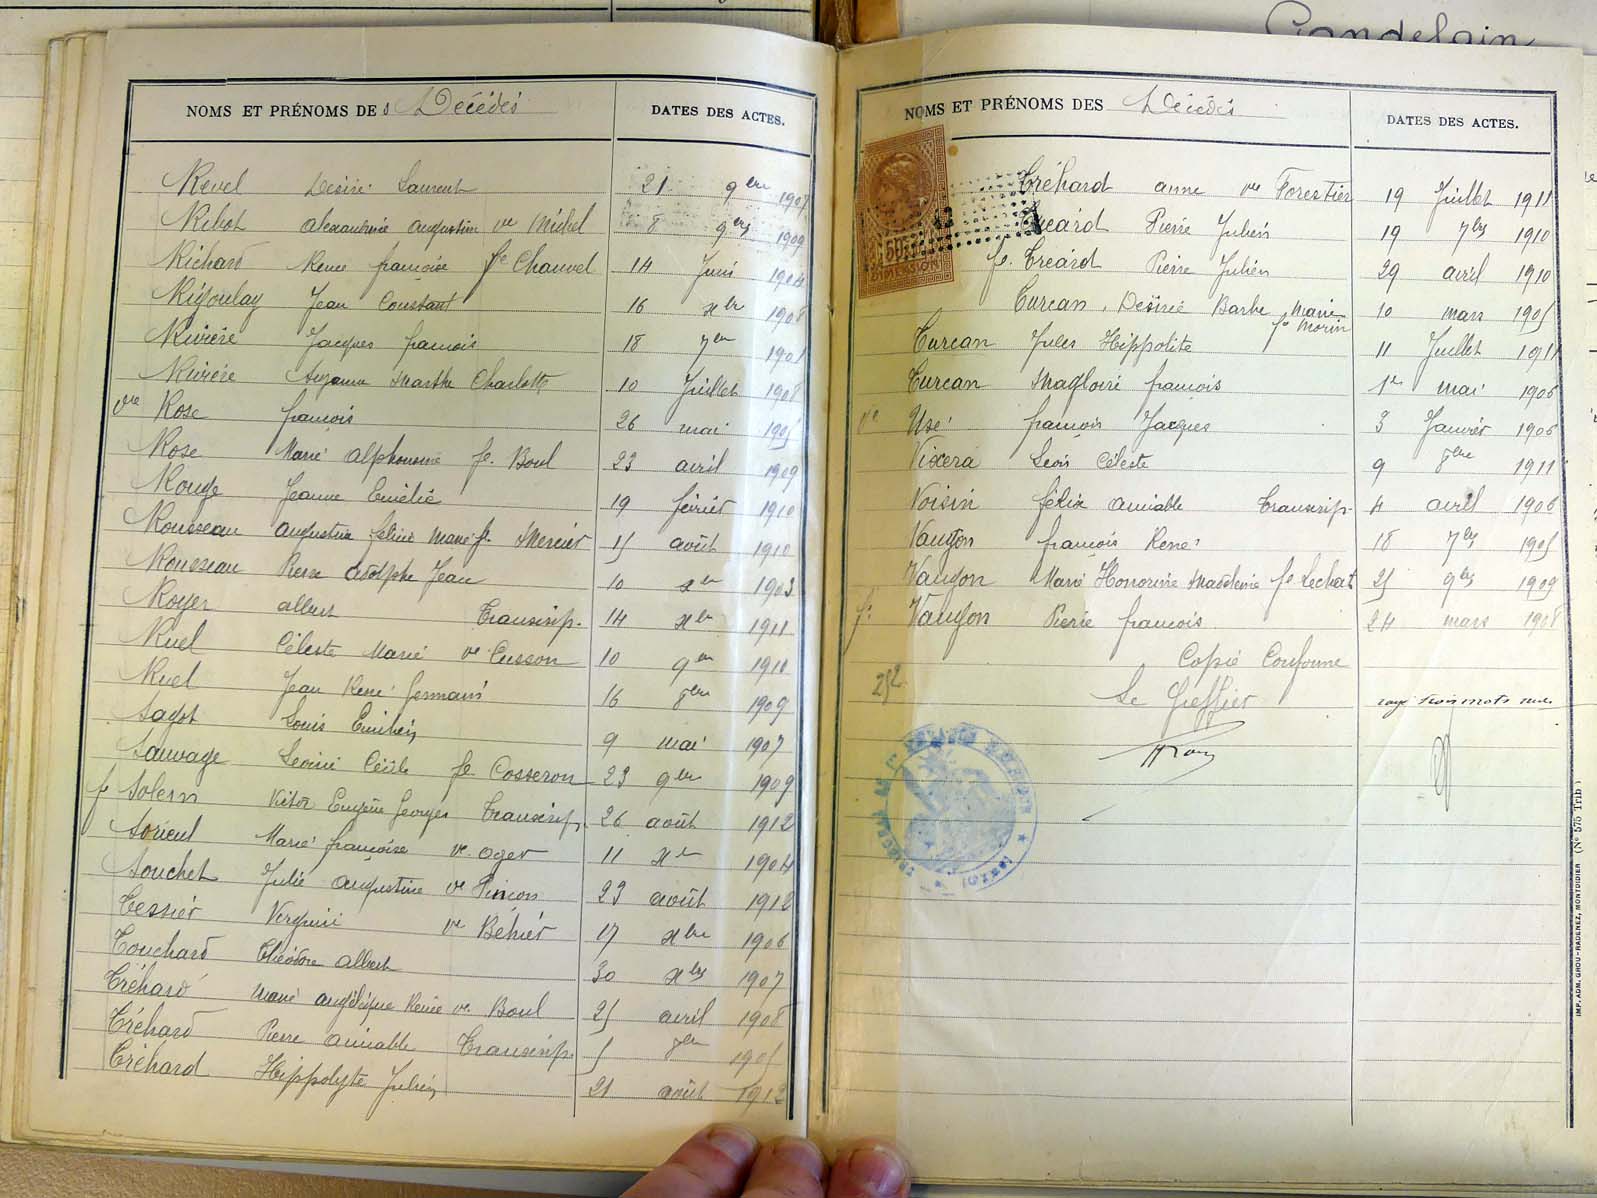 Gandelain
NOMS ET PRÉNOMS DE s Décédés
DATES DES ACTES.
Revel Désiré Laurent 21 9bre 1907
Ribot alexandrine augustine ve Michel 8 9bre 1909
Richard Renée françoise fe Chauvel 14 Juin 1904
Rigoulay Jean Constant 16 xbre 1908
Rivière Jacques françois 18 7bre 1901
Rivière Suzanne Marthe Charlotte 10 Juillet 1908
Rose françois 26 mai 1905
Rose Marie alphonsine fe. Boul 23 avril 1909
Rouge Jeanne Emélie 19 février 1910
Rousseau augustine félicie Marie fe. Mercier 15 août 1910
Rousseau Pierre adolphe Jean 10 xbre 1903
Royer albert Transcrip. 14 xbre 1911
Ruel Céleste Marie ve Cusson 10 9bre 1910
Ruel Jean René Germain 16 8bre 1909
Sagot Louis Emilien 9 mai 1907
Sauvage Léonie Cécile fe. Cosseron 23 9bre 1909
f Solern Victor Eugène Georges Transcrip. 26 août 1912
Sorieul Marie françoise ve. Oger 11 xbre 1904
Souchet Julie augustine ve Pinçon 23 août 1912
Tessier Virginie ve Béhier 17 xbre 1906
Touchard Théodore albert 30 xbre 1907
Tréhard Marie angélique Renée ve. Boul 25 avril 1908
Tréhard Pierre aimable Transcrip. 5 8bre 1905
Tréhard Hippolyte Julien 21 août 1912
NOMS ET PRÉNOMS DES Décédés
DATES DES ACTES.
DIMENSION
Tréhard anne ve Forestier 19 Juillet 1911
Tréard Pierre Julien 19 7bre 1910
f. Tréard Pierre Julien 29 avril 1910
Turcan, Désirée Barbe Marie fe Morin 10 mars 1905
Turcan Jules Hippolite 11 Juillet 1911
Turcan Magloire françois 1er mai 1906
Usé françois Jacques 3 Janvier 1906
Vixera Léon Céleste 9 8bre 1911
Voisin félix aimable Transcrip. 4 avril 1906
Vaugon françois René 18 7bre 1905
Vaugon Marie Honorine Madeleine fe. Lechat 25 9bre 1909
f. Vaugon Pierre françois 24 mars 1908
Copie Conforme
252
Le Greffier
rayé trois mots nuls
IMP. ADM. GROU-RADENEZ, MONTDIDIER (N° 575 Trib)